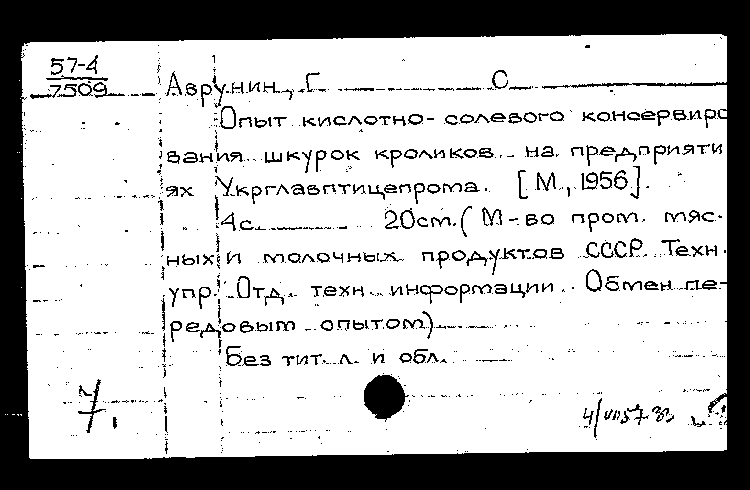 57-4
7509
Аврунин, Г О
Опыт кислотно-солевого консервиро
вания шкурок кроликов на предприяти
ях Укрглавптицепрома. [М., 1956].
4с. 20см. (М-во пром. мяс-
ных и молочных продуктов СССР Техн.
упр. Отд. техн. информации. Обмен пе-
редовым опытом)
Без тит. л. и обл.
7.